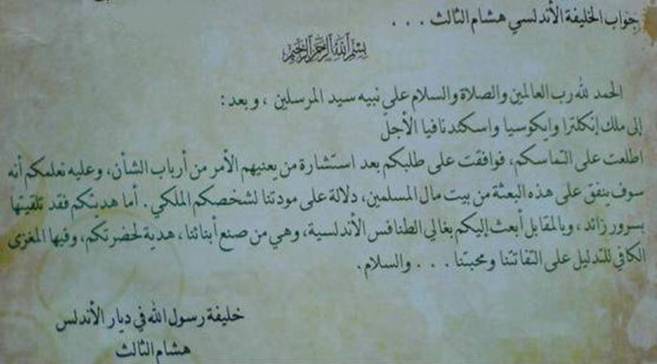 جواب الخليفة الأندلسي هشام الثالث . . .
بسم الله الرحمن الرحيم
الحمد لله رب العالمين والصلاة والسلام على نبيه سيد المرسلين ، وبعد :
إلى ملك إنكلترا وايكوسيا واسكندنافيا الأجل
اطلعت على التماسكم، فوافقت على طلبكم بعد استشارة من يعنيهم الأمر من أرباب الشأن، وعليه نعلمكم أنه
سوف ينفق على هذه البعثة من بيت مال المسلمين، دلالة على مودتنا لشخصكم الملكي. أما هديتكم فقد تلقيتها
بسرور زائد، وبالمقابل أبعث إليكم بغالي الطنافس الأندلسية، وهي من صنع أبنائنا، هدية لحضرتكم، وفيها المغزى
الكافي للتدليل على التفاتتنا ومحبتنا . . . والسلام.
خليفة رسول الله في ديار الأندلس
هشام الثالث